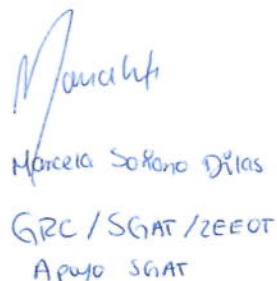 Marcela Solano Dilas
GRC/SGAT/ZEEOT
Apoyo SGAT